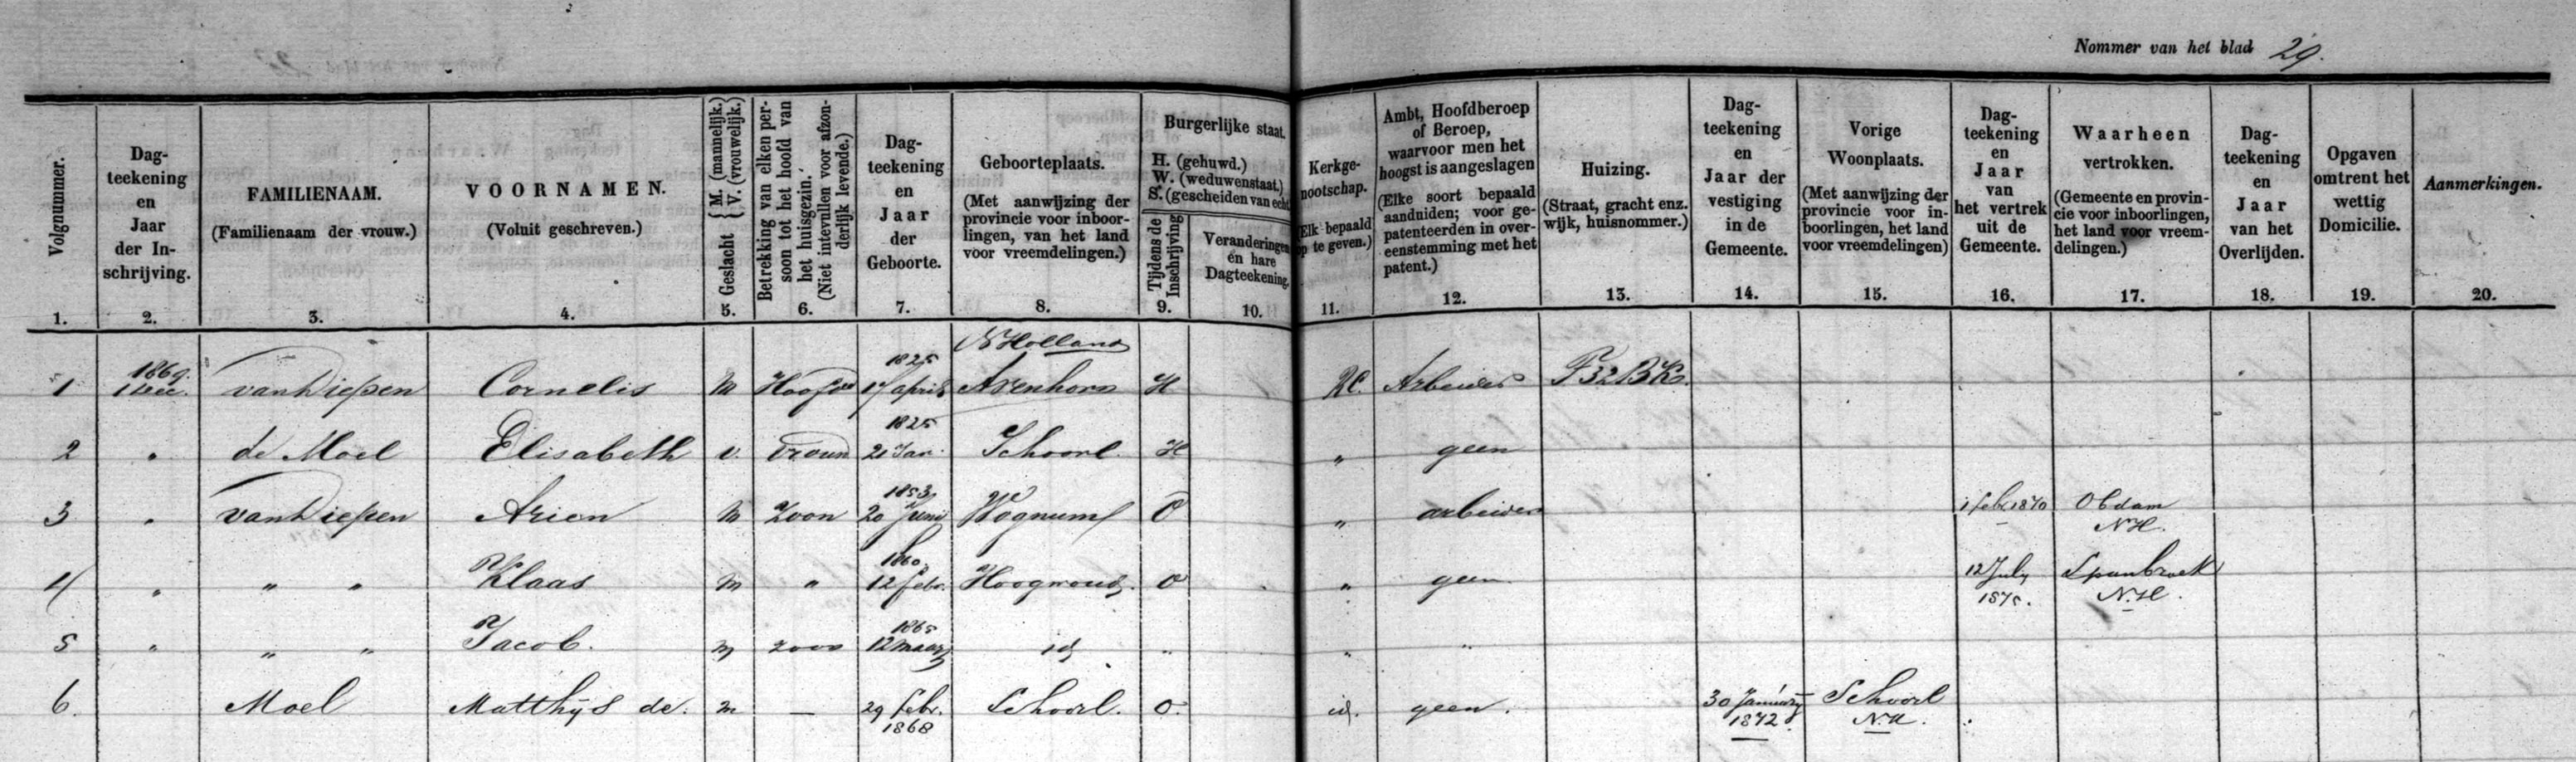 Nommer van het blad 29.
Volgnummer.
1.
Dag-
teekening
en
Jaar
der In-
schrijving.
2.
FAMILIENAAM.
(Familienaam der vrouw.)
3.
VOORNAMEN.
(Voluit geschreven.)
4.
Geslacht { M. (mannelijk.) V. (vrouwelijk.)
5.
Betrekking van elken per-
soon tot het hoofd van
het huisgezin.
(Niet intevullen voor afzon-
derlijk levende.)
6.
Dag-
teekening
en
Jaar
der
Geboorte.
7.
Geboorteplaats.
(Met aanwijzing der
provincie voor inboor-
lingen, van het land
voor vreemdelingen.)
8.
Burgerlijke staat.
H. (gehuwd.)
W. (weduwenstaat.)
S. (gescheiden van echt
Tijdens de
Inschrijving
9.
Veranderingen
en hare
Dagteekening.
10.
Kerkge-
nootschap.
(Elk bepaald
op te geven.)
11.
Ambt, Hoofdberoep
of Beroep,
waarvoor men het
hoogst is aangeslagen
(Elke soort bepaald
aanduiden; voor ge-
patenteerden in over-
eenstemming met het
patent.)
12.
Huizing.
(Straat, gracht enz.
wijk, huisnommer.)
13.
Dag-
teekening
en
Jaar der
vestiging
in de
Gemeente.
14.
Vorige
Woonplaats.
(Met aanwijzing der
provincie voor in-
boorlingen, het land
voor vreemdelingen)
15.
Dag-
teekening
en
Jaar
van
het vertrek
uit de
Gemeente.
16.
Waarheen
vertrokken.
(Gemeente en provin-
cie voor inboorlingen,
het land voor vreem-
delingen.)
17.
Dag-
teekening
en
Jaar
van het
Overlijden.
18.
Opgaven
omtrent het
wettig
Domicilie.
19.
Aanmerkingen.
20.
1869. 1825 N Holland
1 1 Dec. van Diepen Cornelis M Hoofd 17 april Avenhorn H RC. Arbeider F32BK.
1825
2 " de Moel Elisabeth v. vrouw 21 Jan. Schoorl. H " geen
1853
3 " van Diepen Arien M Zoon 20 Junij Wognum O " arbeider 1 feb 1870 Obdam
N H.
1860
4 " " " Klaas m " 12 febr. Hoogwoud. O " geen 12 July Spanbroek
1875. N.H.
1865
5 " " " Jacob. m zoon 12 maart id " " "
6 Moel Matthijs de. m — 29 febr. Schoorl. O. id. geen. 30 January Schoorl
1868 1872 N.H.